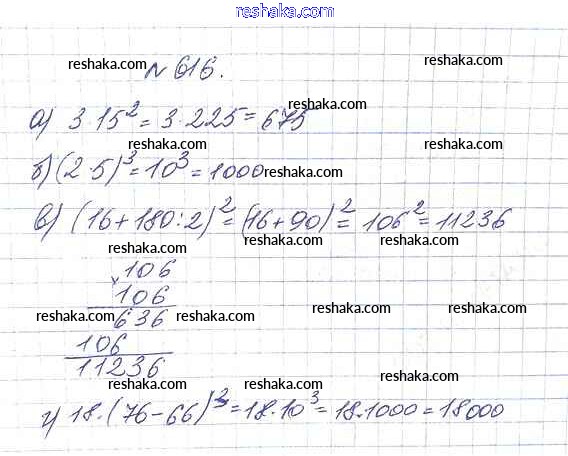 reshaka.com
reshaka.com reshaka.com
№ 616.
reshaka.com
а) 3·15² = 3·225 = 675
reshaka.com reshaka.com
б) (2·5)³ = 10³ = 1000
reshaka.com reshaka.com
в) (16+180:2)² = (16+90)² = 106² = 11236
reshaka.com reshaka.com reshaka.com
× 106
106
reshaka.com
636
reshaka.com reshaka.com reshaka.com
106
11236
reshaka.com reshaka.com reshaka.com
г) 18·(76-66)³ = 18·10³ = 18·1000 = 18000
reshaka.com reshaka.com